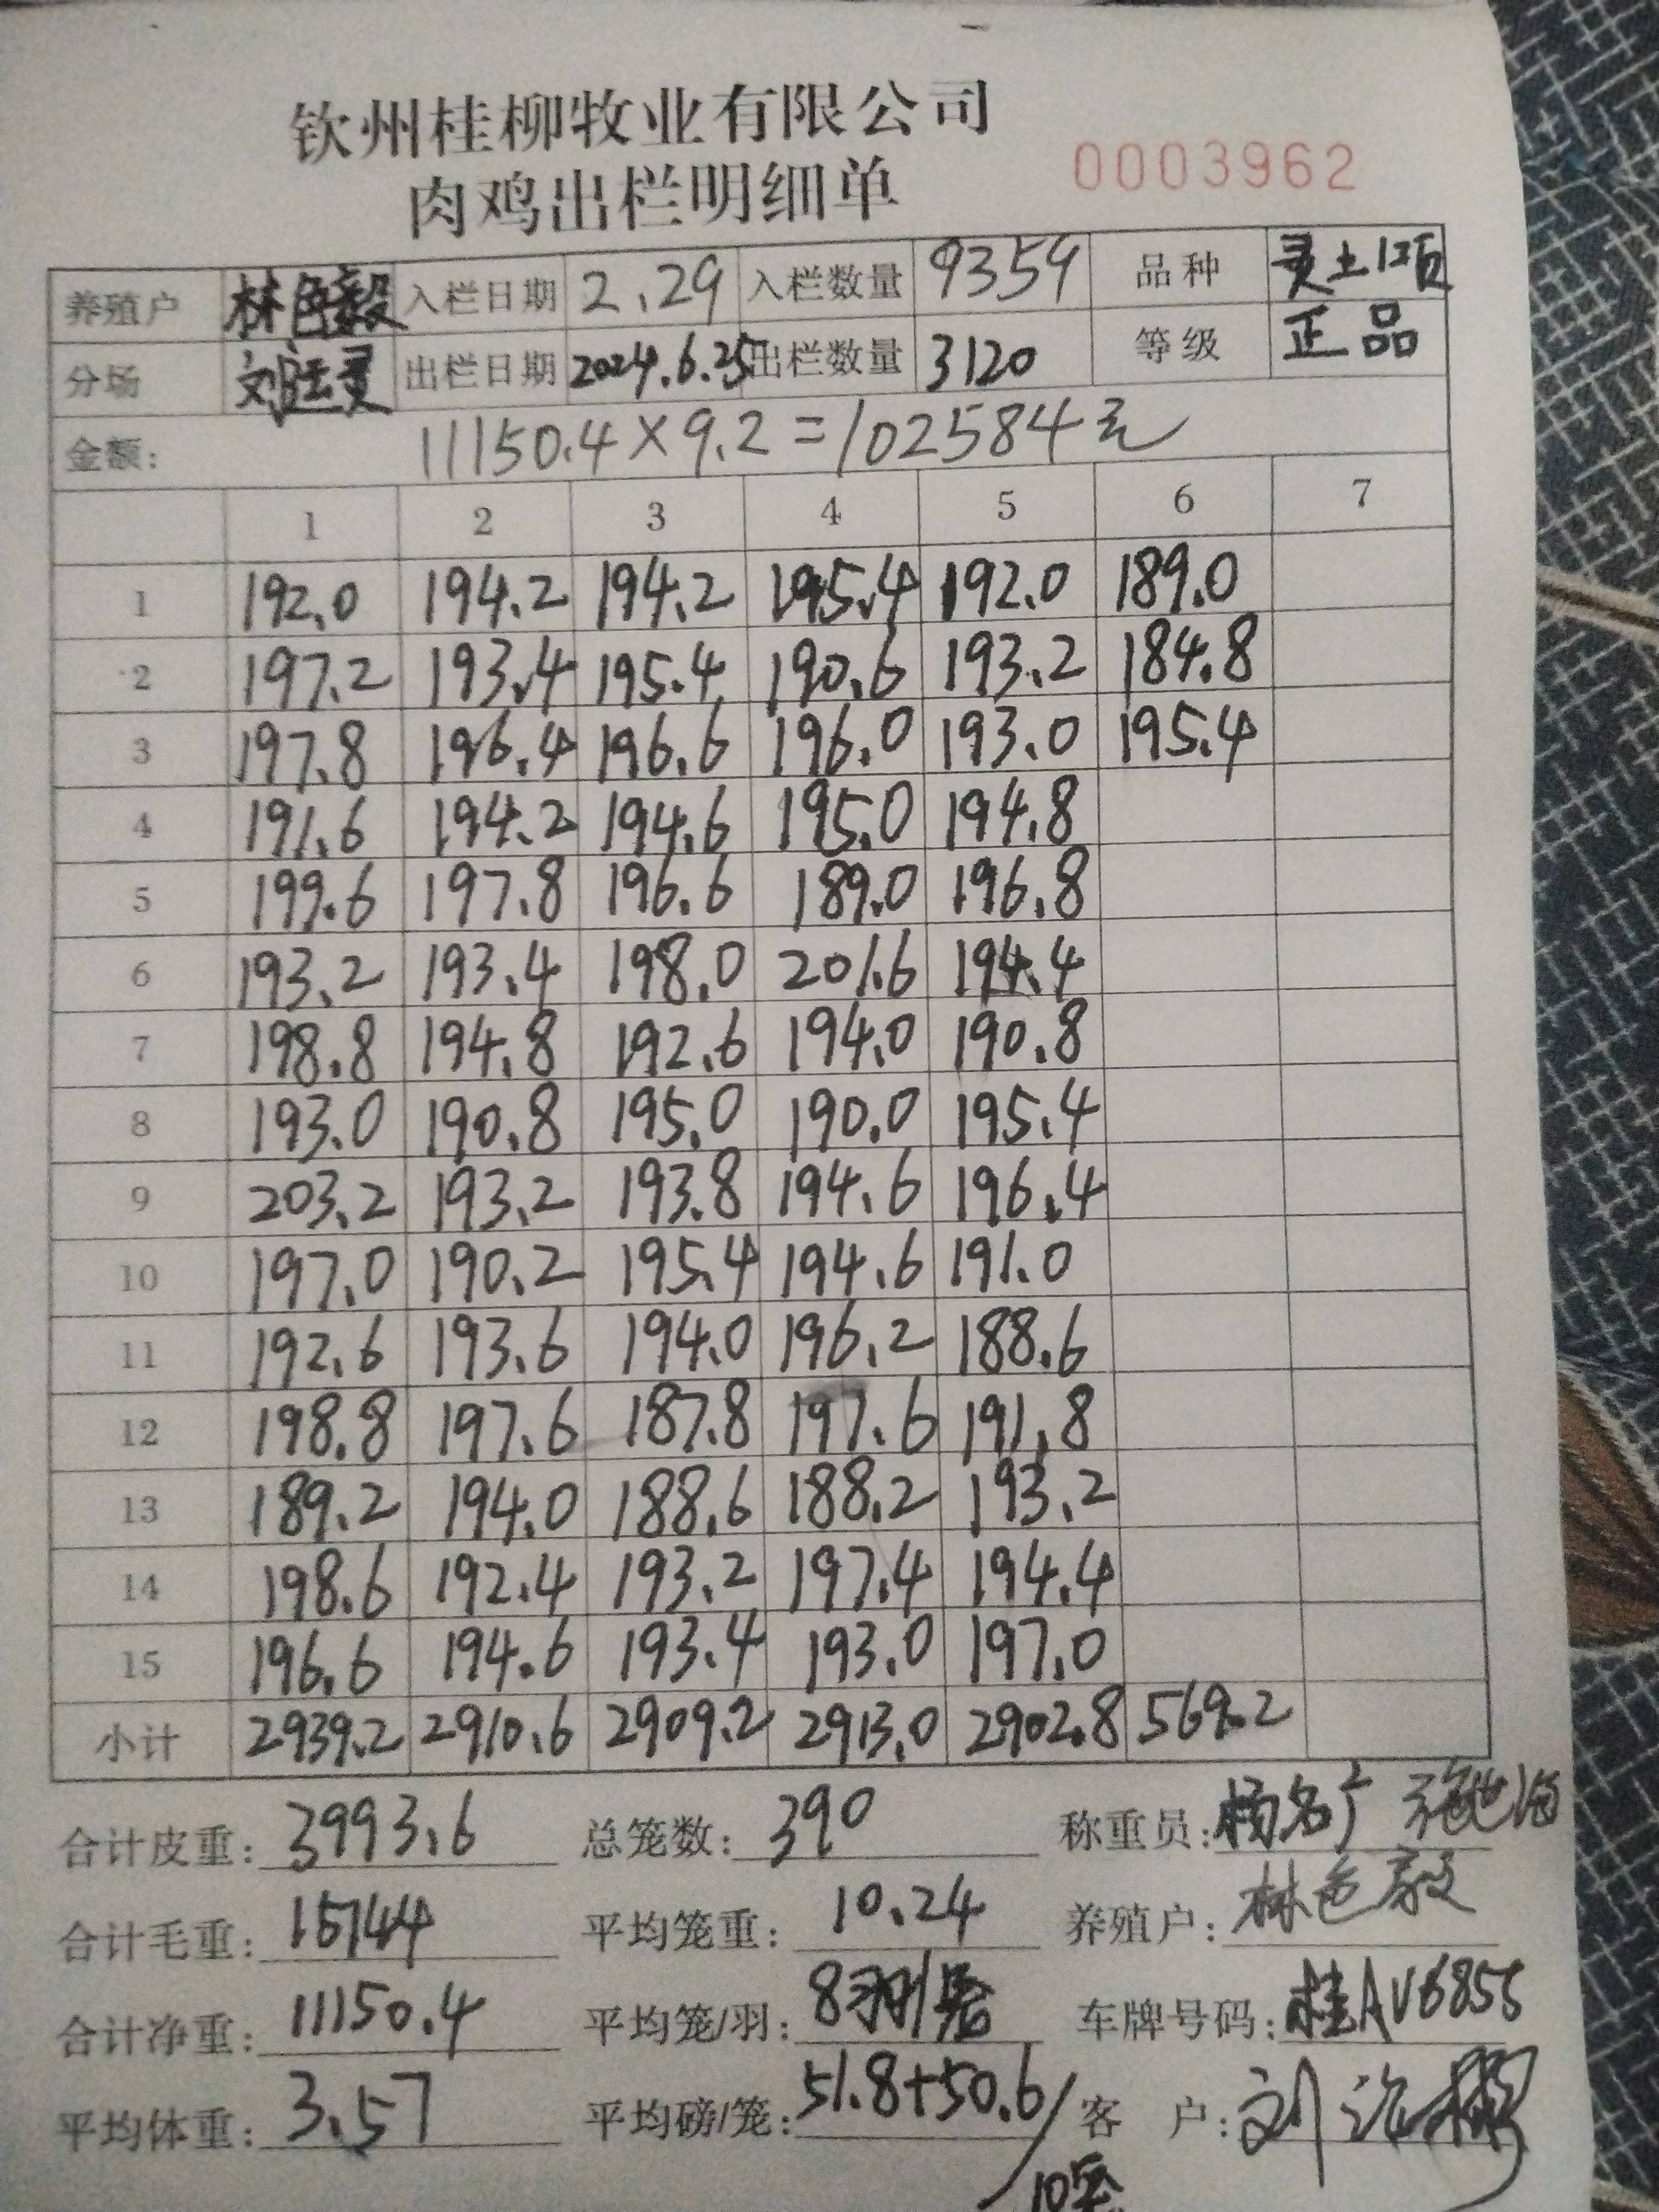 钦州桂柳牧业有限公司
肉鸡出栏明细单 0003962
养殖户 林色毅 入栏日期 2.29 入栏数量 9359 品种 灵土12项
分场 刘廷灵 出栏日期 2024.6.25 出栏数量 3120 等级 正品
金额: 11150.4×9.2=102584元
1 2 3 4 5 6 7
1 192.0 194.2 194.2 195.4 192.0 189.0
2 197.2 193.4 195.4 190.6 193.2 184.8
3 197.8 196.4 196.6 196.0 193.0 195.4
4 191.6 194.2 194.6 195.0 194.8
5 199.6 197.8 196.6 189.0 196.8
6 193.2 193.4 198.0 201.6 194.4
7 198.8 194.8 192.6 194.0 190.8
8 193.0 190.8 195.0 190.0 195.4
9 203.2 193.2 193.8 194.6 196.4
10 197.0 190.2 195.4 194.6 191.0
11 192.6 193.6 194.0 196.2 188.6
12 198.8 197.6 187.8 197.6 191.8
13 189.2 194.0 188.6 188.2 193.2
14 198.6 192.4 193.2 197.4 194.4
15 196.6 194.6 193.4 193.0 197.0
小计 2939.2 2910.6 2909.2 2913.0 2902.8 569.2
合计皮重: 3993.6 总笼数: 390 称重员: 杨名广
合计毛重: 15144 平均笼重: 10.24 养殖户: 林色毅
合计净重: 11150.4 平均笼/羽: 8羽/笼 车牌号码: 桂AV6855
平均体重: 3.57 平均磅/笼: 51.8+50.6/ 客 户: 刘
10笼